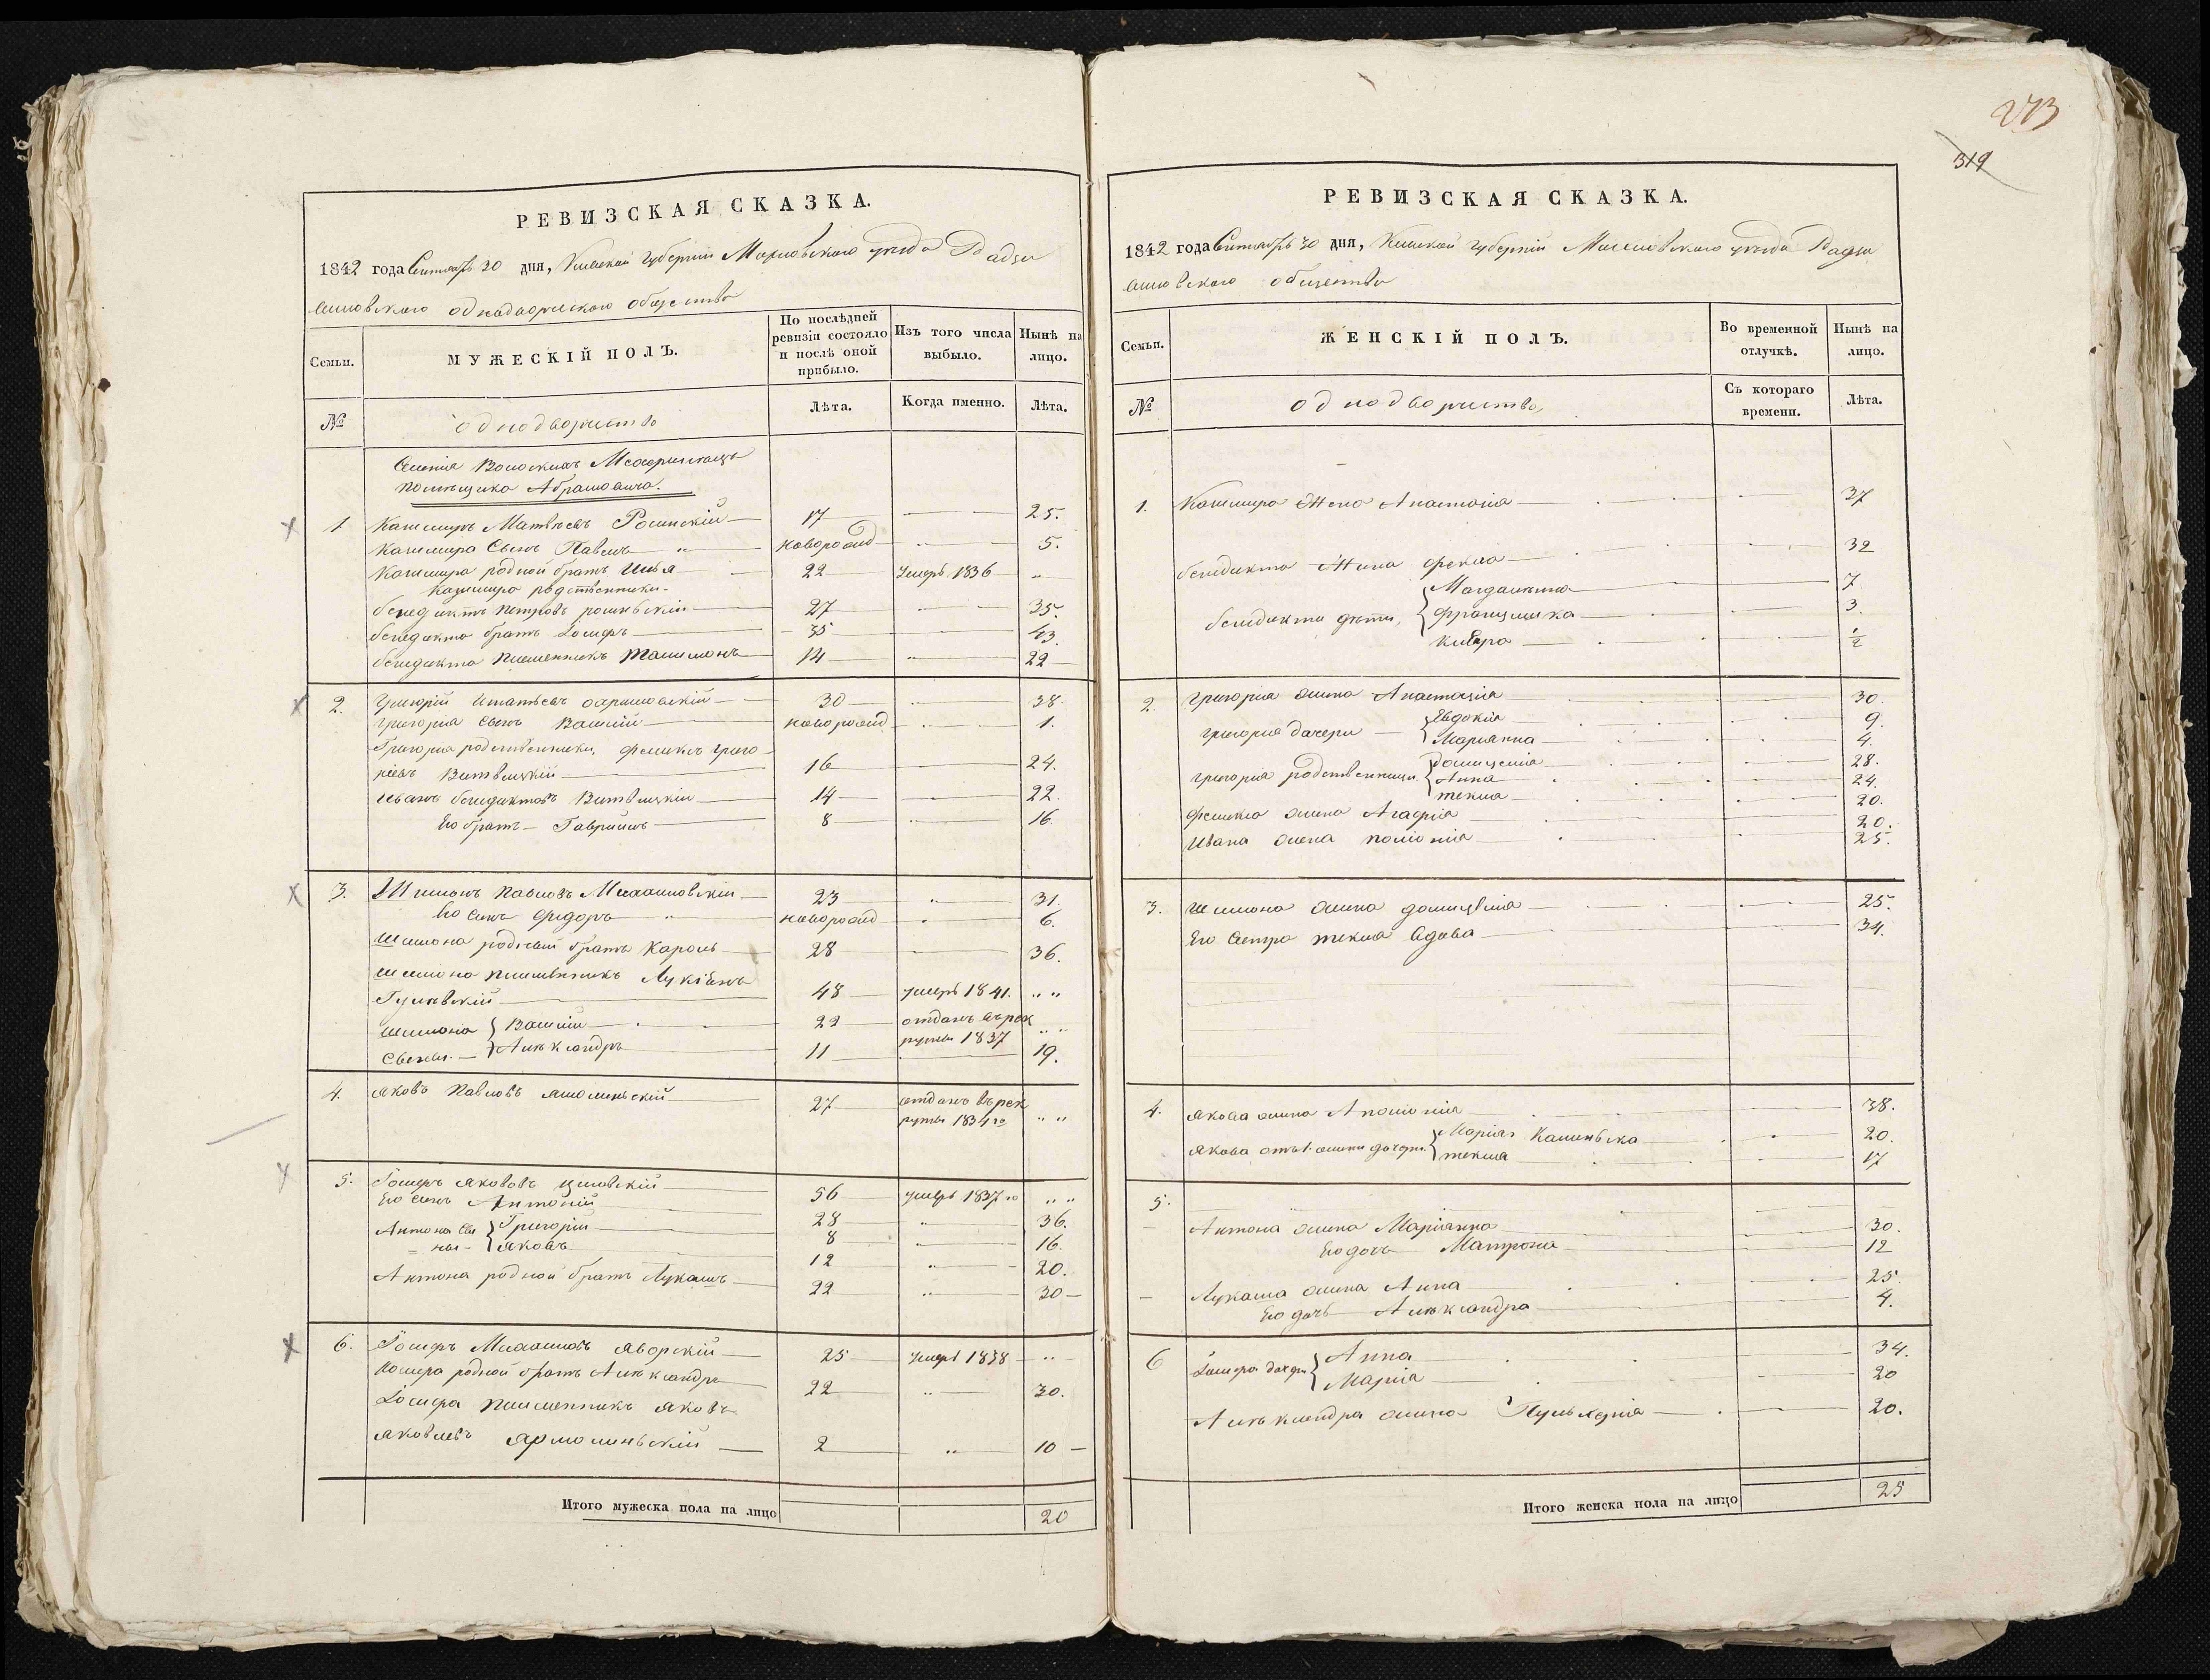 273
319
РЕВИЗСКАЯ СКАЗКА.
1842 года Сентябръ 30 дня, Киевской губерніи уезда Радзи
вилловскаго однодворческаго общества
Семьи.
МУЖЕСКІЙ ПОЛЪ.
По послѣдней ревизіи состояло и послѣ оной прибыло.
Изъ того числа выбыло.
Нынѣ на лицо.
№
однодворчество
Лѣта.
Когда именно.
Лѣта.
помещика Абрамовича.
1 Казимиръ Матвеевъ Росинскій 17 25.
Казимира Сынъ Павелъ " новорожд 5.
Казимира родной братъ Илья 22 Умеръ 1836 "
Казимира родственники
бенедиктъ Петровъ росиньскій 27 35.
бенедикта братъ Іосифъ 35 43
бенедикта племенникъ 14 22
2. Григорій Игнатьевъ 30 38.
Григорія Сынъ Василій новорожд 1.
Григорія родственники, Феликсъ Григо
ріевъ Витвицкій 16 24.
Иванъ бенедиктовъ Витвицкій 14 22.
Его братъ Гаврилъ 8 16.
3. Шимонъ Павловъ 23 " 31.
Его Синъ Фидоръ " новорожд " 6.
Шимона родный братъ Кароль 28 36.
Шимона племенникъ Лукіянъ
48 умеръ 1841. " "
Шимона Василій 22 отданъ въ рек
руты 1837 " "
Сыны. Александръ 11 19.
4. Яковъ Павловъ 27 отданъ въ рек
руты 1834го " "
5. Іосифъ Якововъ 56 умеръ 1837го " "
Его Синъ Антоній 28 " 36.
Антона Сы Григорій 8 16.
ны Яковъ 12 " 20.
Антона родной братъ Лукашъ 22 " 30
6. Іосифъ Яворскій 25 Умеръ 1838 "
Іосифа родной братъ Александръ 22 " 30.
Іосифа племенникъ Яковъ
Яковлевъ Ярмолиньскій 2 " 10
Итого мужеска пола на лицо 20
РЕВИЗСКАЯ СКАЗКА.
1842 года Сентябръ 30 дня, Киевской губерніи уезда Радзи
вилловскаго общества
Семьи.
ЖЕНСКІЙ ПОЛЪ.
Во временной отлучкѣ.
Нынѣ на лицо.
№
однодворчество,
Съ котораго времени.
Лѣта.
1. Казимира Жена Анастасія 37
бенедикта Жена Фекла 32
Магдалина 7
бенедикта дѣти, Францишка 3.
1/2
2. Григорія жена Анастасія 30.
Евдокія 9.
Григорія дочери Маріанна 4.
Домицелія 28.
Григорія родственницы Анна 24.
текля 20.
Феликса жена Агафія 20.
Ивана жена Полонія 25.
3. Шимона жена домицеліа 25.
Его Сестра текля вдова 34.
4. Якова жена Аполонія 38.
Якова дочери. Марія 20.
текля 17
5.
Антона жена Маріанна 30.
Его дочь Матрона 12
Лукаша жена Анна 25.
Его дочъ Александра 4.
6 Іосифа дочери Анна 34.
Марія 20
Александра жена Пульхерія 20.
Итого женска пола на лицо 25